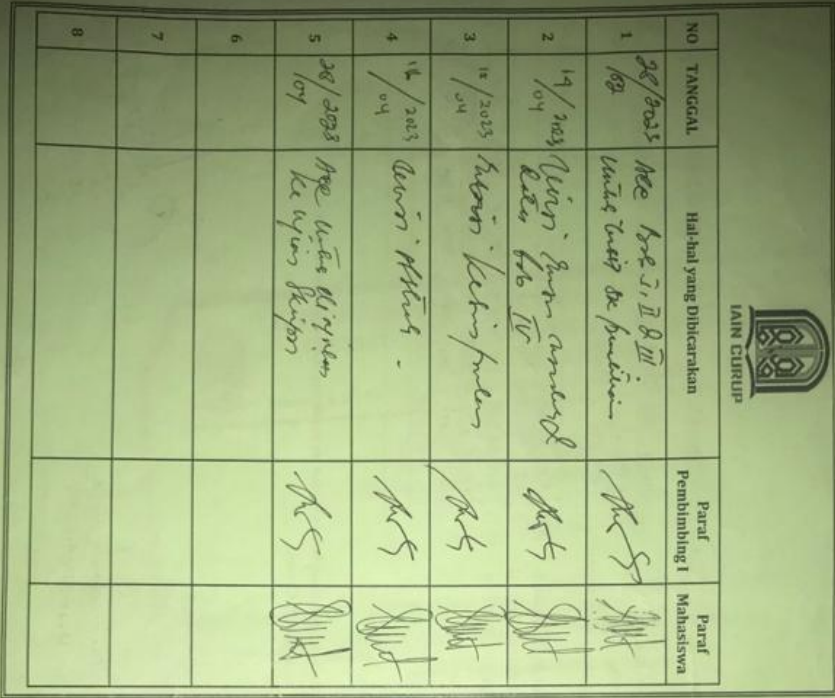 IAIN CURUP
NO TANGGAL Hal-hal yang Dibicarakan Paraf Pembimbing I Paraf Mahasiswa
1 28/2023 Acc Bab I, II & III
/02 untuk SK penelitian
2 14/2023 Revisi
04 bab IV
3 18/2023 Revisi Kesimpulan
04
4 /2023 Revisi Abstrak .
04
5 28/2023 Acc untuk diujikan
/04 ke ujian Skripsi
6
7
8